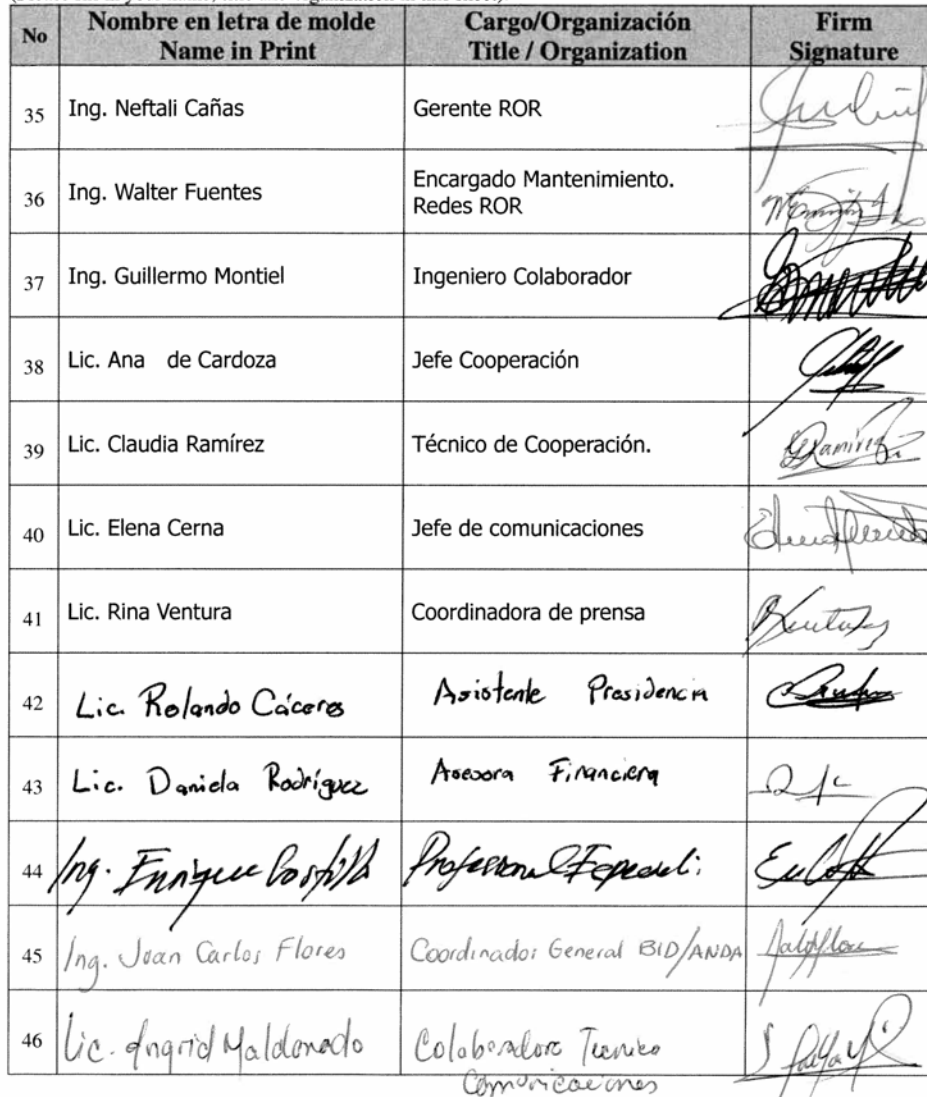 No
Nombre en letra de molde
Name in Print
Cargo/Organización
Title / Organization
Firm
Signature
35 Ing. Neftali Cañas Gerente ROR
36 Ing. Walter Fuentes Encargado Mantenimiento.
Redes ROR
37 Ing. Guillermo Montiel Ingeniero Colaborador
38 Lic. Ana de Cardoza Jefe Cooperación
39 Lic. Claudia Ramírez Técnico de Cooperación. Ramírez
40 Lic. Elena Cerna Jefe de comunicaciones
41 Lic. Rina Ventura Coordinadora de prensa
42 Lic. Rolando Cáceres Asistente Presidencia
43 Lic. Daniela Rodríguez Asesora Financiera
44 Ing. Enrique Profesional
45 Ing. Juan Carlos Flores Coordinador General BID/ANDA
46 Lic. Ingrid Maldonado Colaboradora Tecnico
Comunicaciones